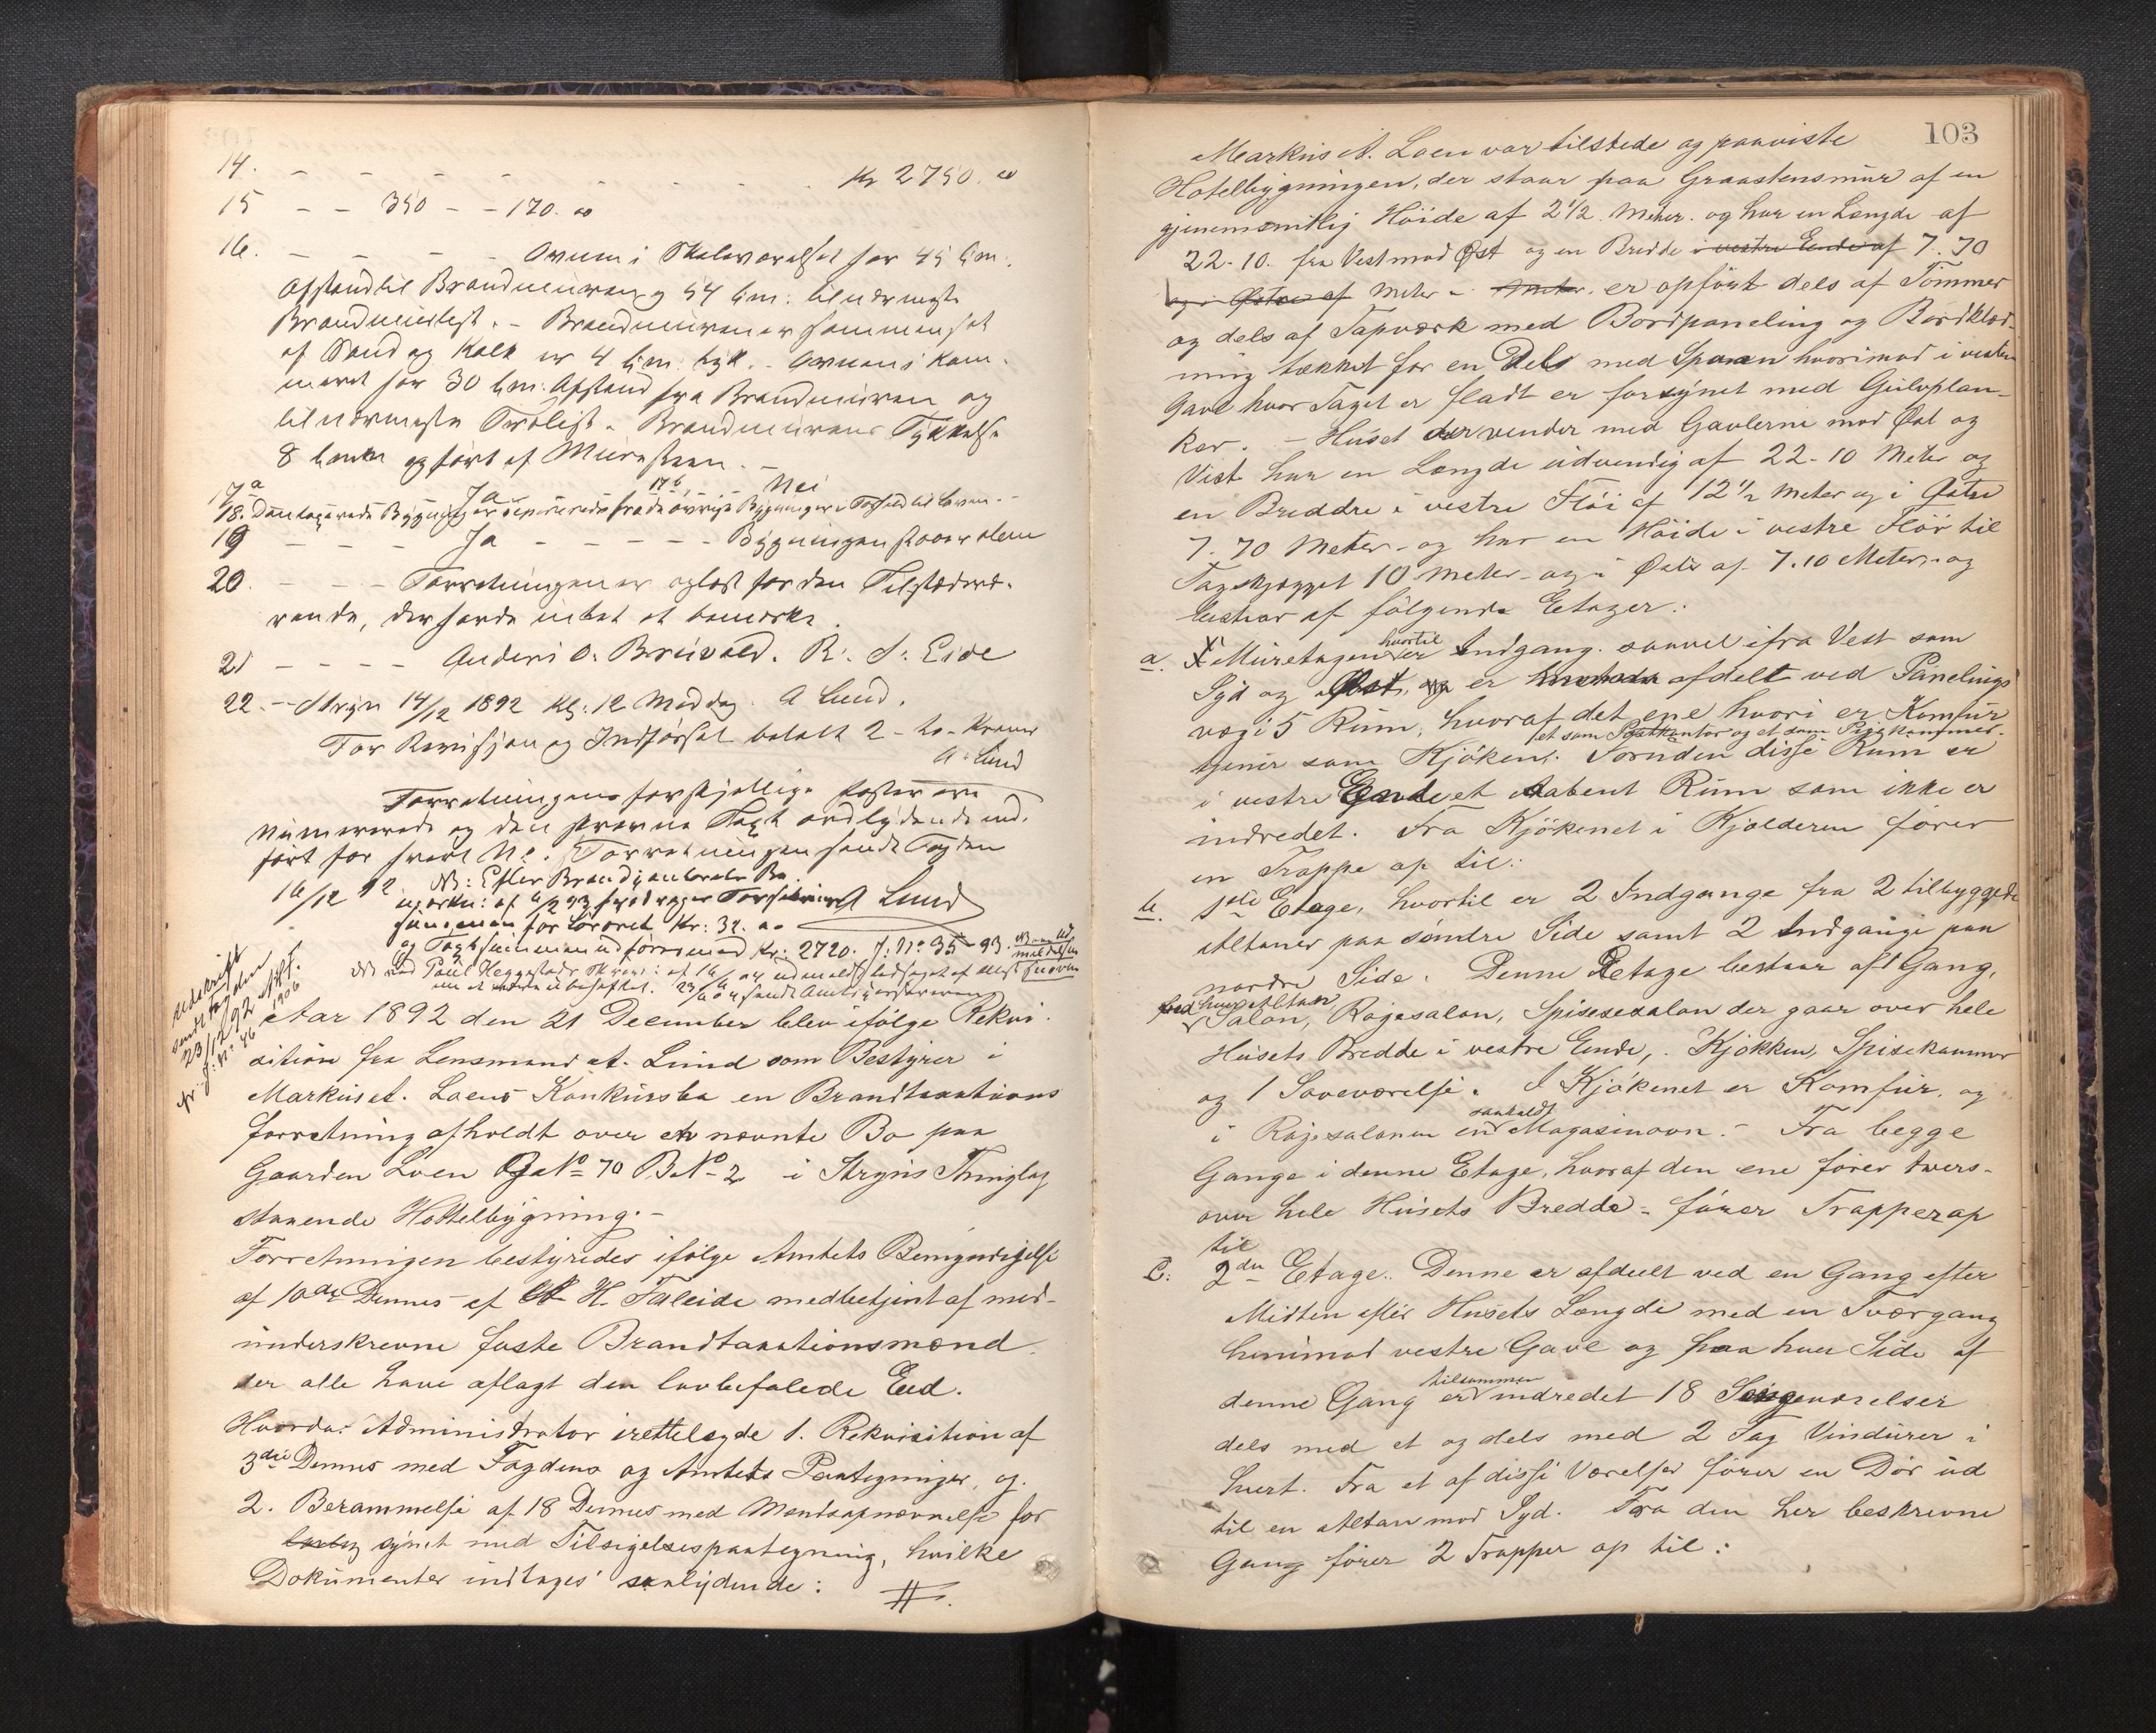 14. - - - - - - - - Kr 2750. 00
15 - - 350 - - 170. 00
16. - - - - Ovnen i Skoleværelset har 45 Ctm.
Afstand til Brandmuren og 54 Ctm: til nærmeste
Brandmurlist. - Brandmuren er sammensat
af Sand og Kalk er 4 Ctm: tyk. - Ovnen i Kam-
meret har 30 Ctm: Afstand fra Brandmuren og
til nærmeste Trælist. Brandmurens Tykkelse
8 opført af Mursteen. -
17 a Ja - 17 b - - Nei
18. Den taxerede Bygning er de øvrige Bygninger i Forhold til Loven. -
19 - - - Ja - - - - - Bygningen staar alene
20. - - - Forretningen er oplæst for den Tilstedevæ-
rende, der havde intet at bemærke.
21 - - - - Anders O. Brúvold. R. S. Eide
22. - Stryn 14/12 1892 Kl: 12 Middag. A Lund.
For Revisjon og Indførsel betalt 2 - to - Kroner
A. Lund
Forretningens forskjellige Poster ere
numererede og den skrevne Text ordlydende ind-
ført for hvert No. Forretningen sendt Fogden
16/12 92 A Lund
NB: Efter
for Kr: 32. 00
og Kr: 2720. J. No 35 - 93.
Udskrift
sendt Fogden
23/12 92
J: No. 46
Aar 1892 den 21 December blev ifølge Rekvi-
sition fra Lensmand A. Lund som Bestyrer i
Markus A. Loens Konkursbo en Brandtaxations
forretning afholdt over nævnte Bo paa
Gaarden Loen G No 70 B. No 2 i Stryns Thinglag
staaende Hottelbygning. -
Forretningen bestyredes ifølge Amtets Bemyndigelse
af 10de Dennes af H. Faleide medbetjent af med-
underskrevne faste Brandtaxationsmænd
der alle have aflagt den lovbefalede Eed.
Hvorda: Administrator irettelagde 1. Rekvisition af
3die Dennes med Fogdens og Amtets Paategninger, og
2. Berammelse af 18 Dennes med Mandsopnævnelse for
synet med Tilsigelsespaategning, hvilke
Dokumenter indtages saalydende: #.
103
Markus A. Loen var tilstede og paaviste
Hotelbygningen, der staar paa Graastensmur af en
gjenemsnitlig Höide af 2 1/2 Meter. og har en Længde af
22-10. fra Vest mod Øst og en Bredde i vestre Ende af 7.70
og i Østre af Meter - Meter. er opført dels af Tömmer
og dels af Tapværk med Bordpaneling og Bordklæd-
ning tækket for en Dels med Spaan hvorimod i vestre
Gavl hvor Taget er fladt er forsynet med Gulvplan-
ker. - Huset der vender med Gavlerne mod Øst og
Vest har en Længde udvendig af 22-10 Meter og
en Breddre i vestre Flöi af 12 1/2 Meter og i Østre
7.70 Meter - og har en Höide i vestre Flöi til
Tagskjægget 10 Meter - og i Østre af 7.10 Meter, - og
bestaar af fölgende Etager:
a. I Muretagen hvortil er Indgang saavel ifra Vest som
Syd og Øst, er afdelt ved Panelings
væg i 5 Rum, hvoraf det ene hvori er Komfur
et som Postkontor og et som Pigekammer.
tjener som Kjöken. Foruden disse Rum er
i vestre Ende et aabent Rum som ikke er
indredet. Fra Kjökenet i Kjælderen förer
en Trappe op til:
b. 1ste Etage, hvortil er 2 Indgange fra 2 tilbyggede
Altaner paa söndre Side samt 2 Indgange paa
nordre Side. Denne Etage bestaar af 1 Gang,
hver Altan
Salon, Røgesalon, Spisesalon der gaar over hele
Husets Bredde i vestre Ende, . Kjökken, Spisekammer
og 1 Soveværelse. I Kjökenet er Komfur, og
i Røgesalonen en saakaldt Magasinovn. - Fra begge
Gange i denne Etage, hvoraf den ene förer tvers-
over hele Husets Bredde - förer Trapper op
til
c: 2den Etage. Denne er afdeelt ved en Gang efter
Midten efter Husets Længde med en Tværgang
henimod vestre Gavl og paa hver Side af
denne Gang er tilsammen indredet 18 Sengeværelser
dels med et og dels med 2 Fag Vinduer i
hvert. Fra et af disse Værelser förer en Dör ud
til en Altan mod Syd. Fra den her beskrevne
Gang förer 2 Trapper op til: